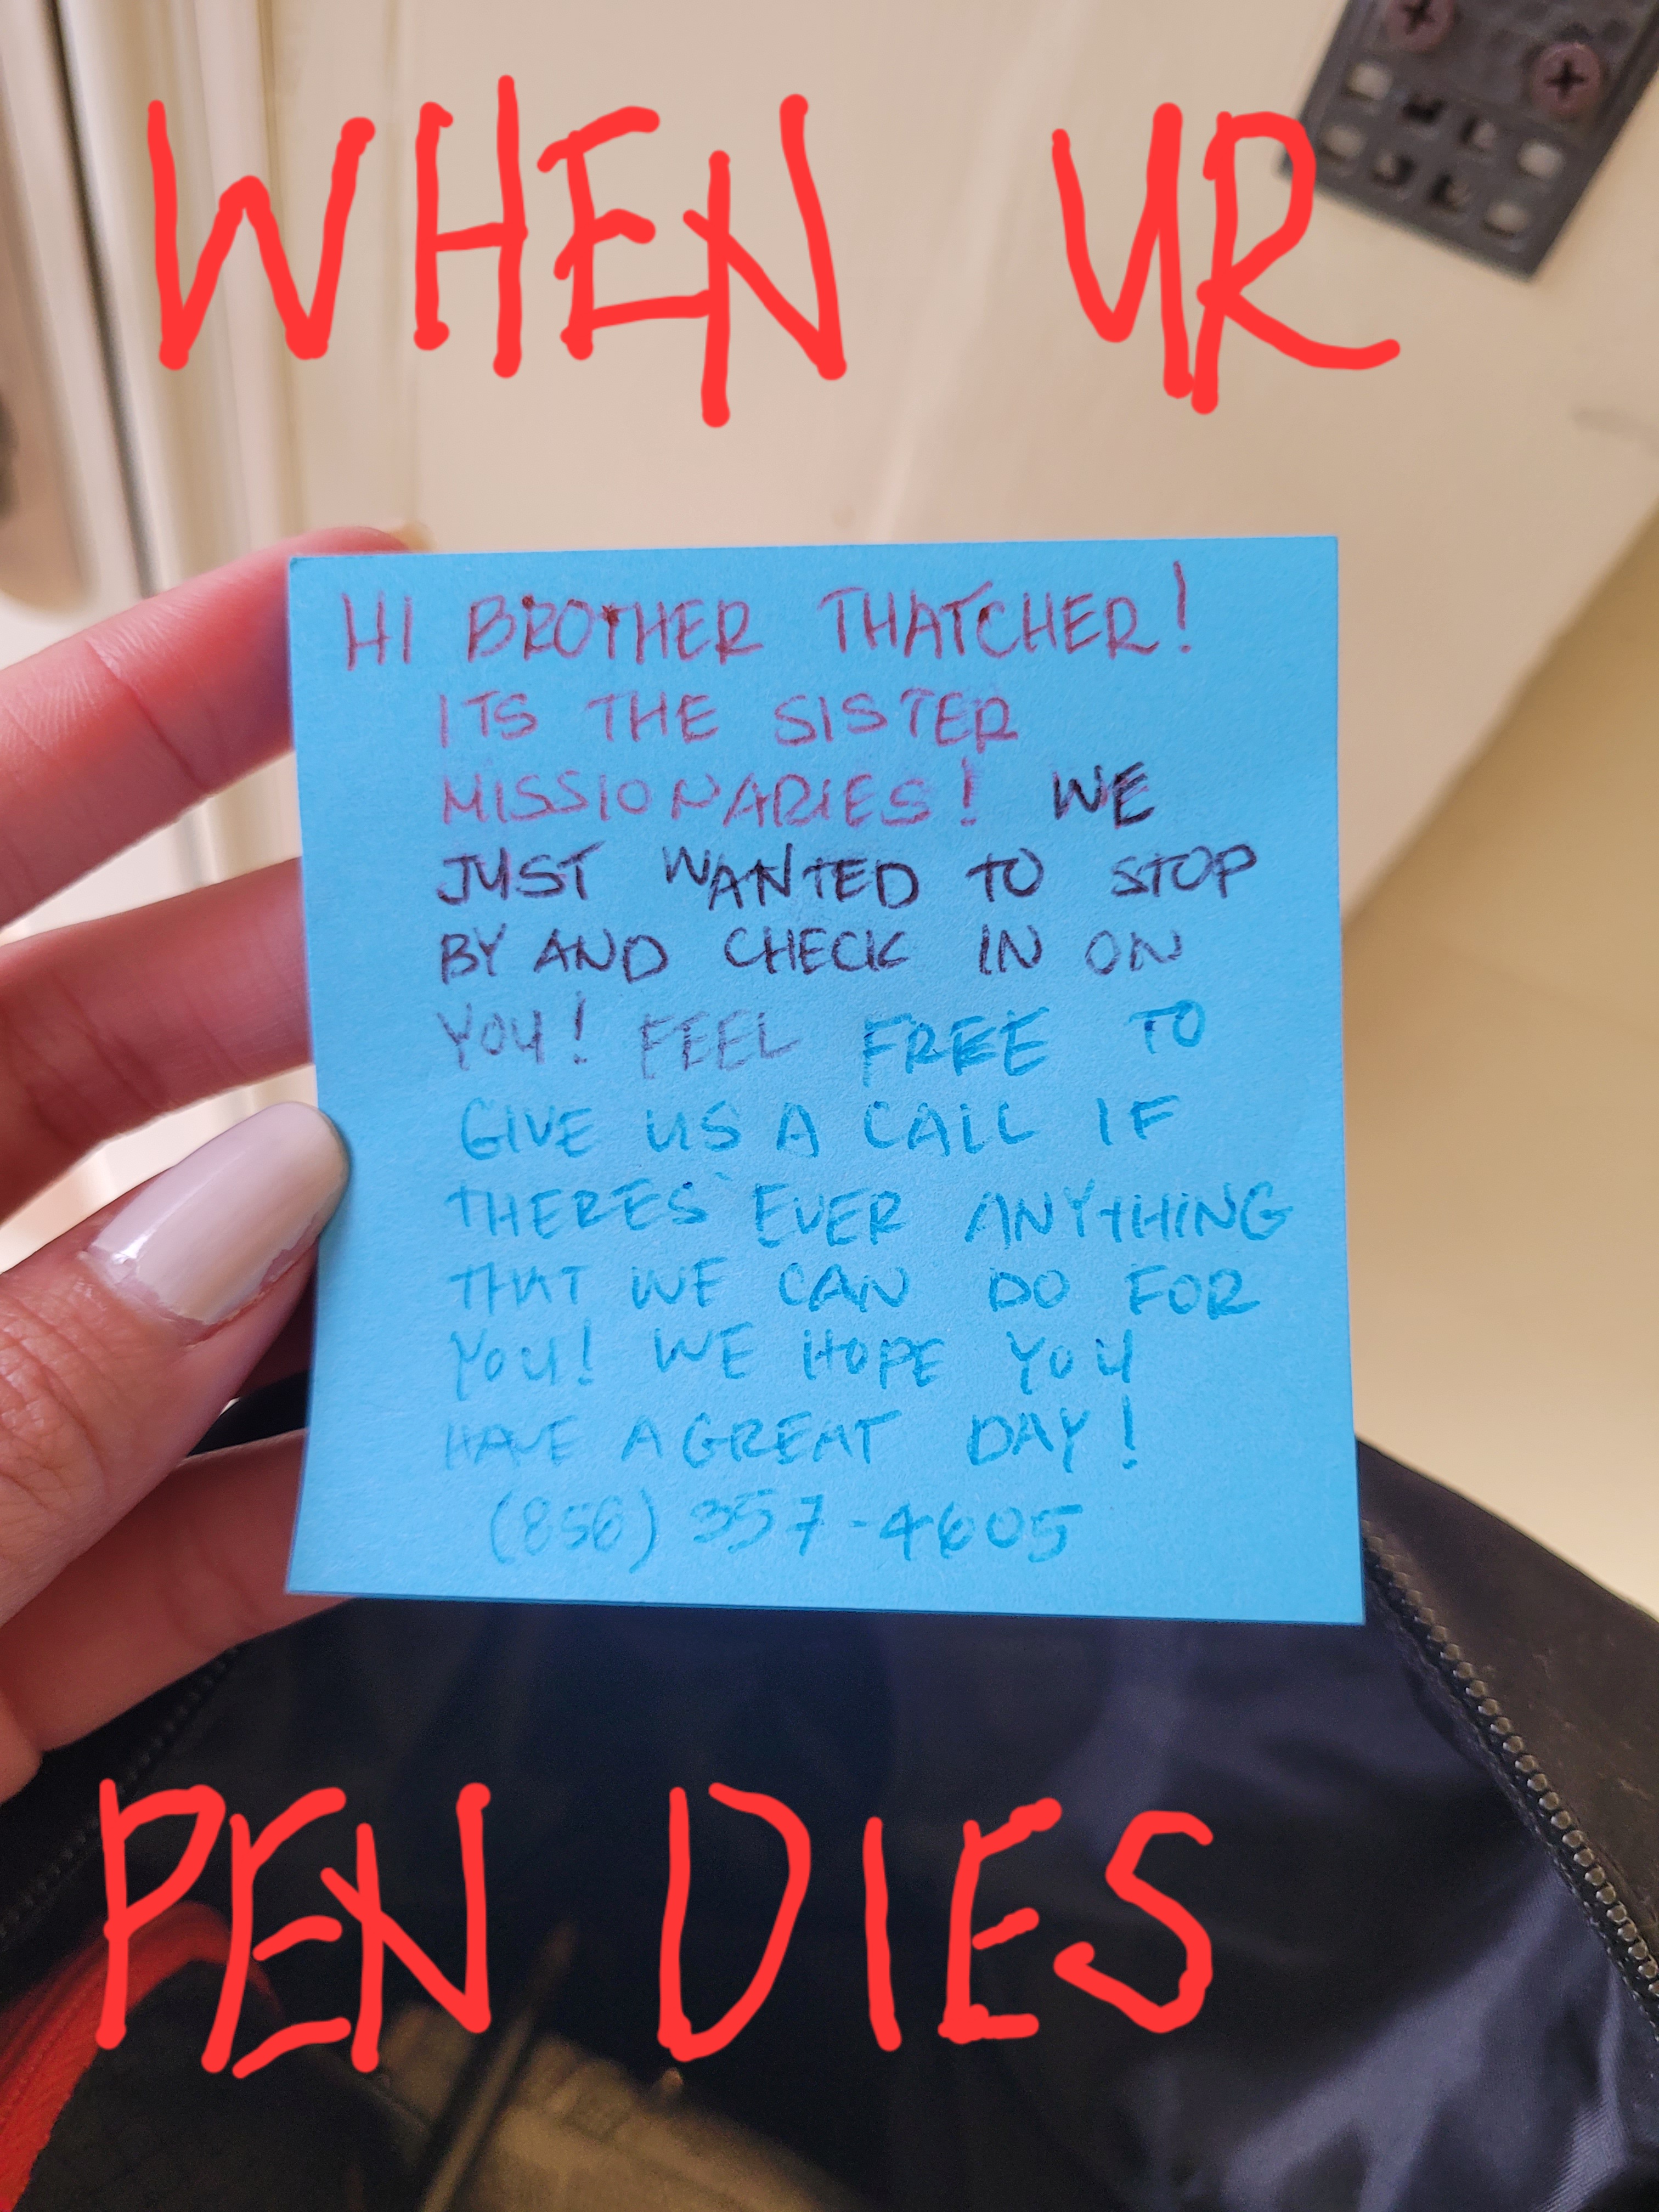 WHEN UR
HI BROTHER THATCHER!
ITS THE SISTER
MISSIONARIES! WE
JUST WANTED TO STOP
BY AND CHECK IN ON
YOU! FEEL FREE TO
GIVE US A CALL IF
THERES EVER ANYTHING
THAT WE CAN DO FOR
YOU! WE HOPE YOU
HAVE A GREAT DAY!
(856) 357-4605
PEN DIES